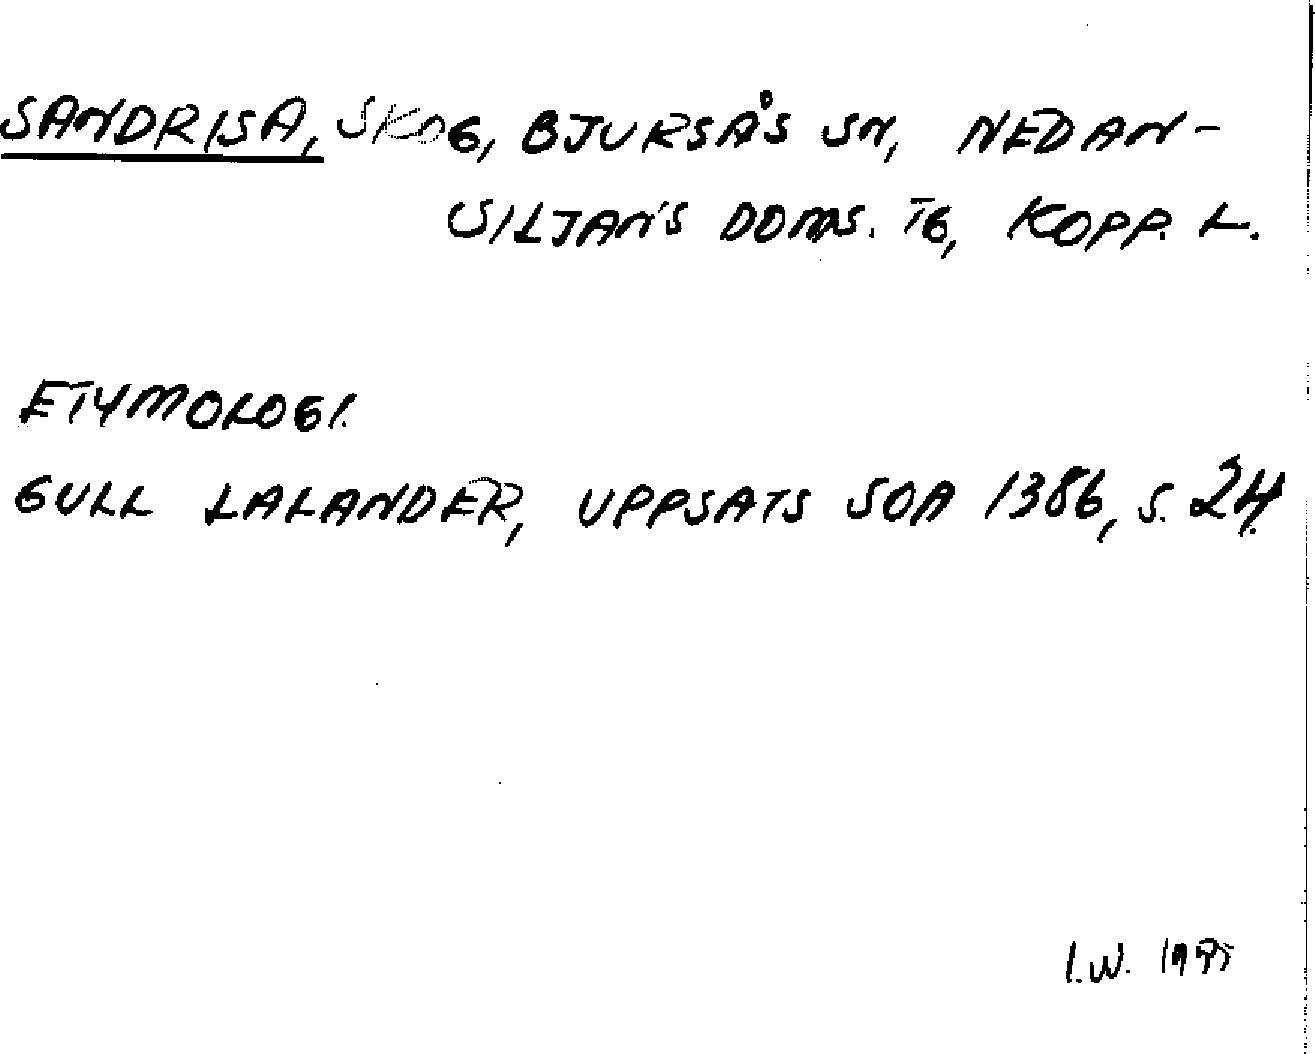 SANDRISA, SKOG, BJURSÅS SN, NEDAN-
SILJANS DOMS. TG, KOPP. L.
ETYMOLOGI.
GULL LALANDER, UPPSATS SOA 1386, S. 24.
I.W.